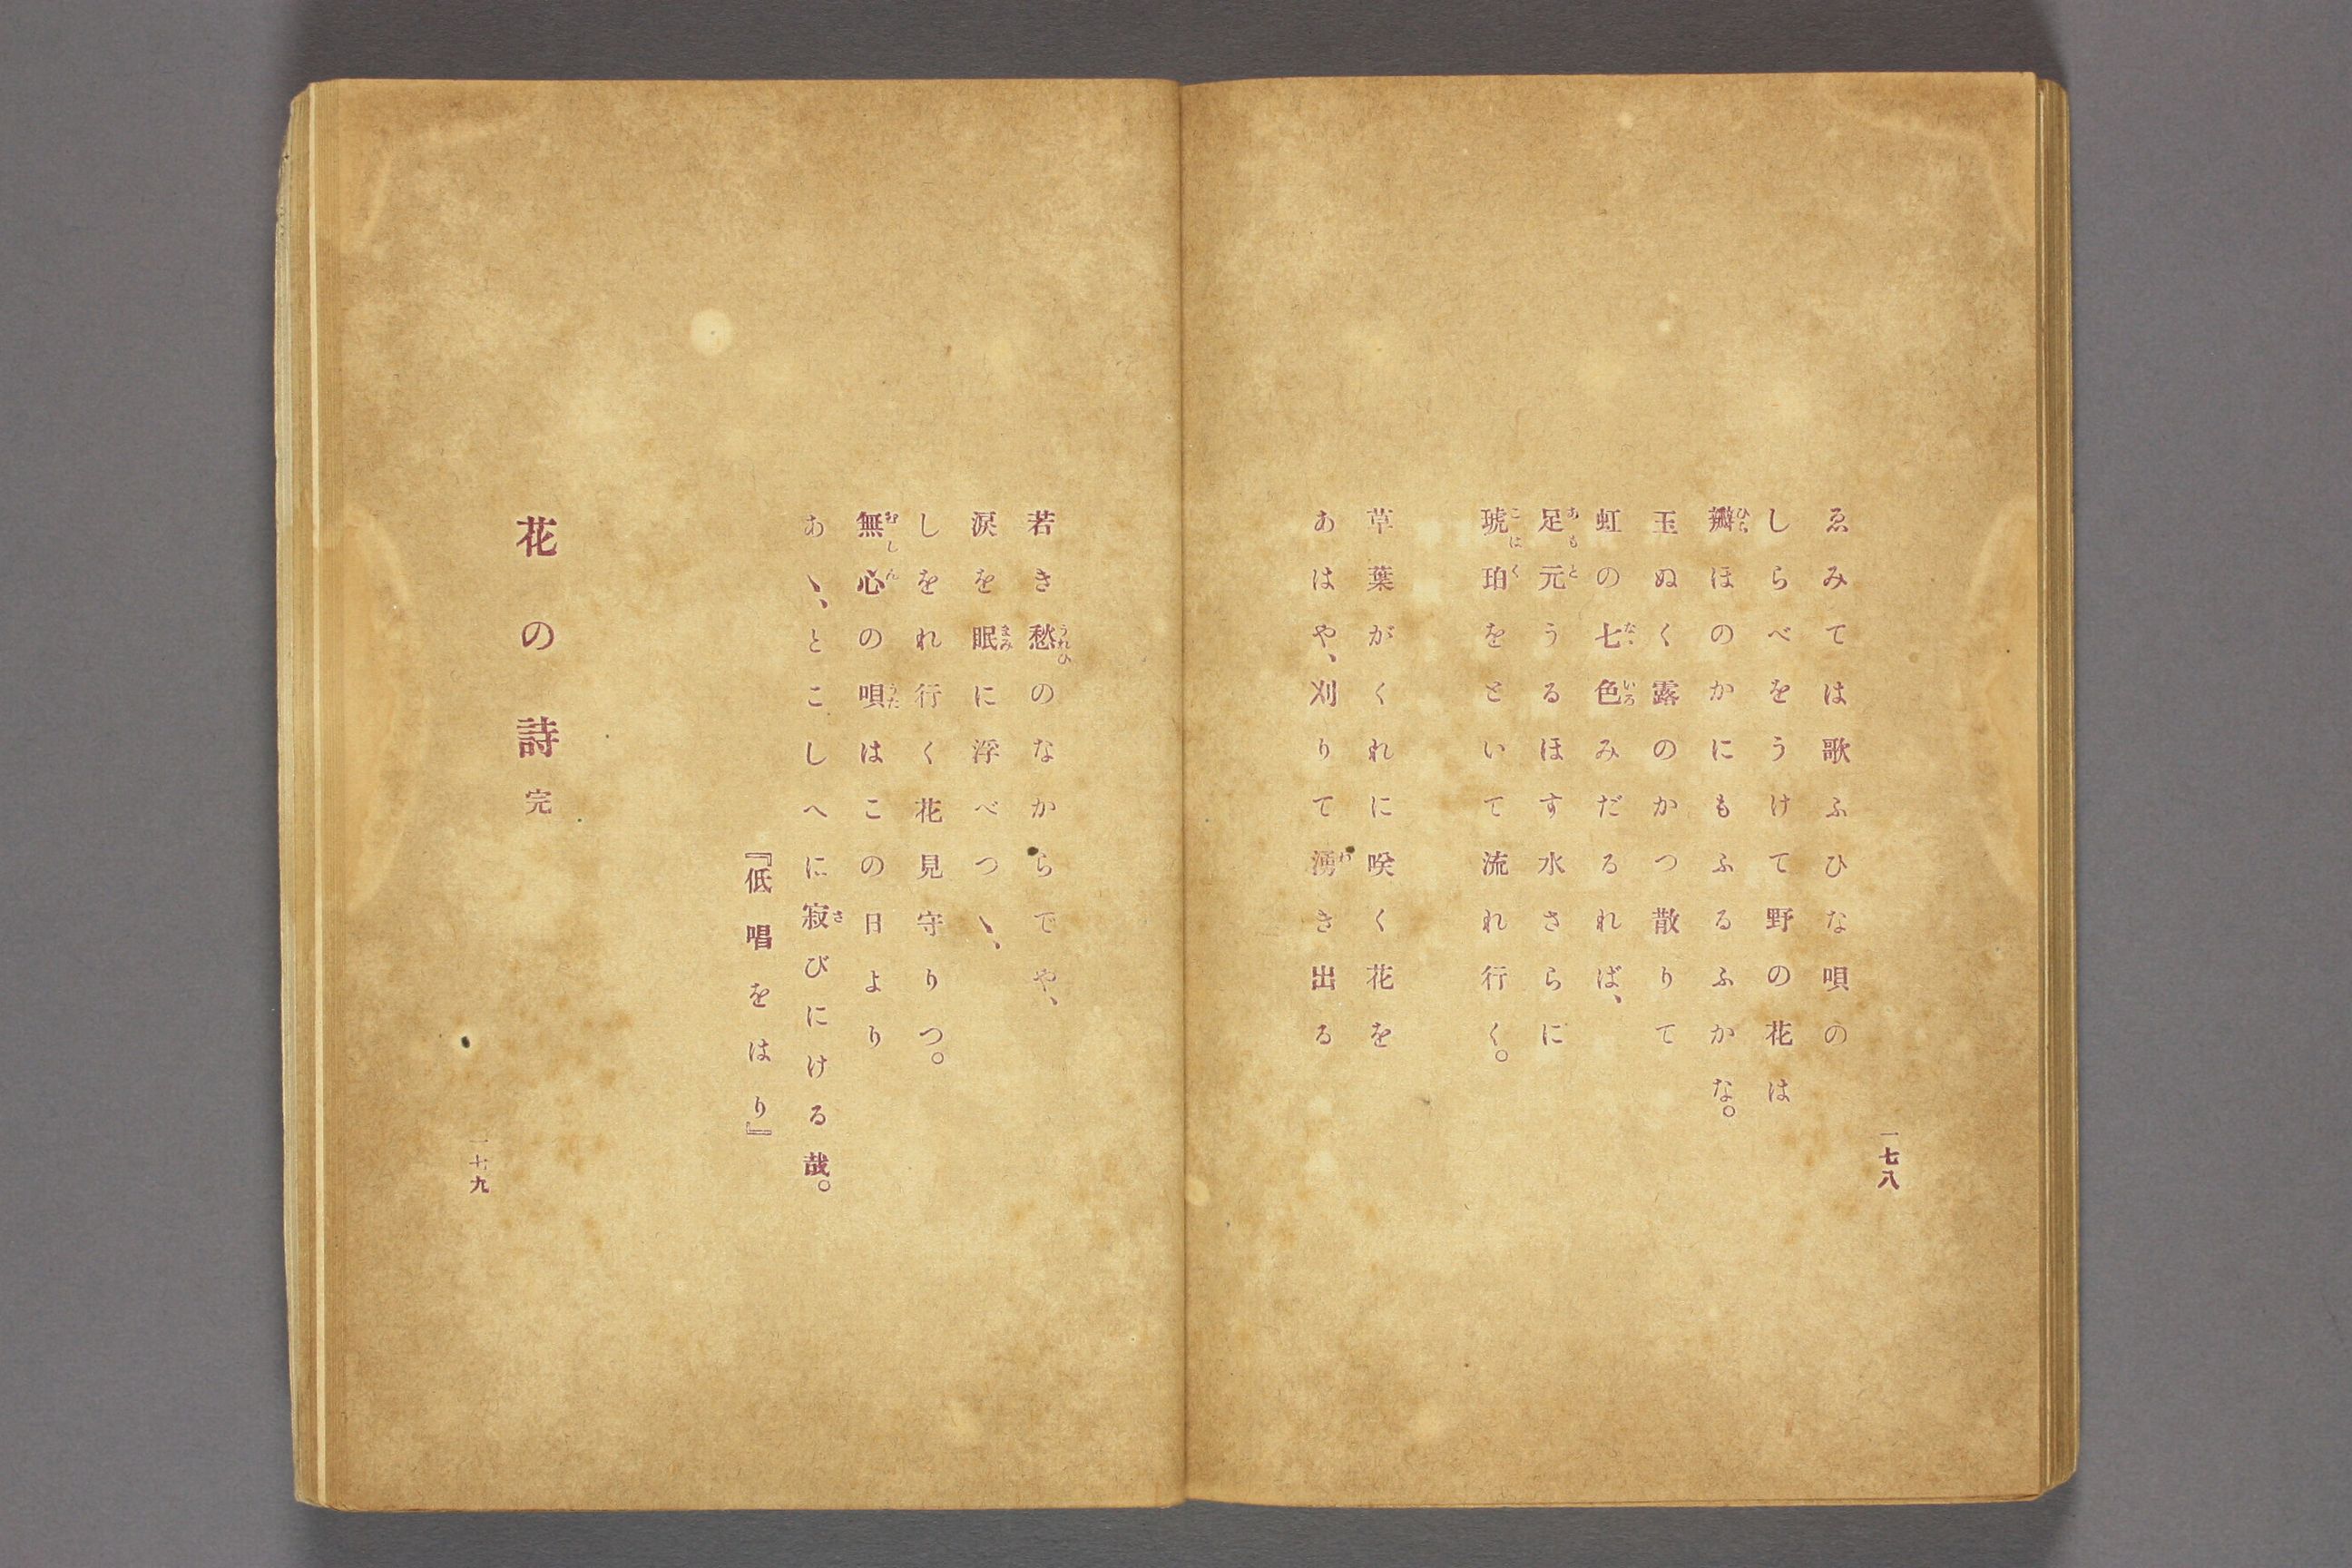 一七八
ゑみては歌ふひな唄の
しらべをうけて野の花は
瓣ほのかにもふるふかな。
玉ぬく露のかつ散りて
虹の七色みだるれば、
足元うるほす水さらに
琥珀をといて流れ行く。
草葉がくれに咲く花を
あはや、刈りて湧き出る
若き愁のなからでや、
涙を眠に浮べつゝ、
しをれ行く花見守りつ。
無心の唄はこの日より
あゝ、とこしへに寂びにける哉。
『低唱をはり』
花の詩完
一七九